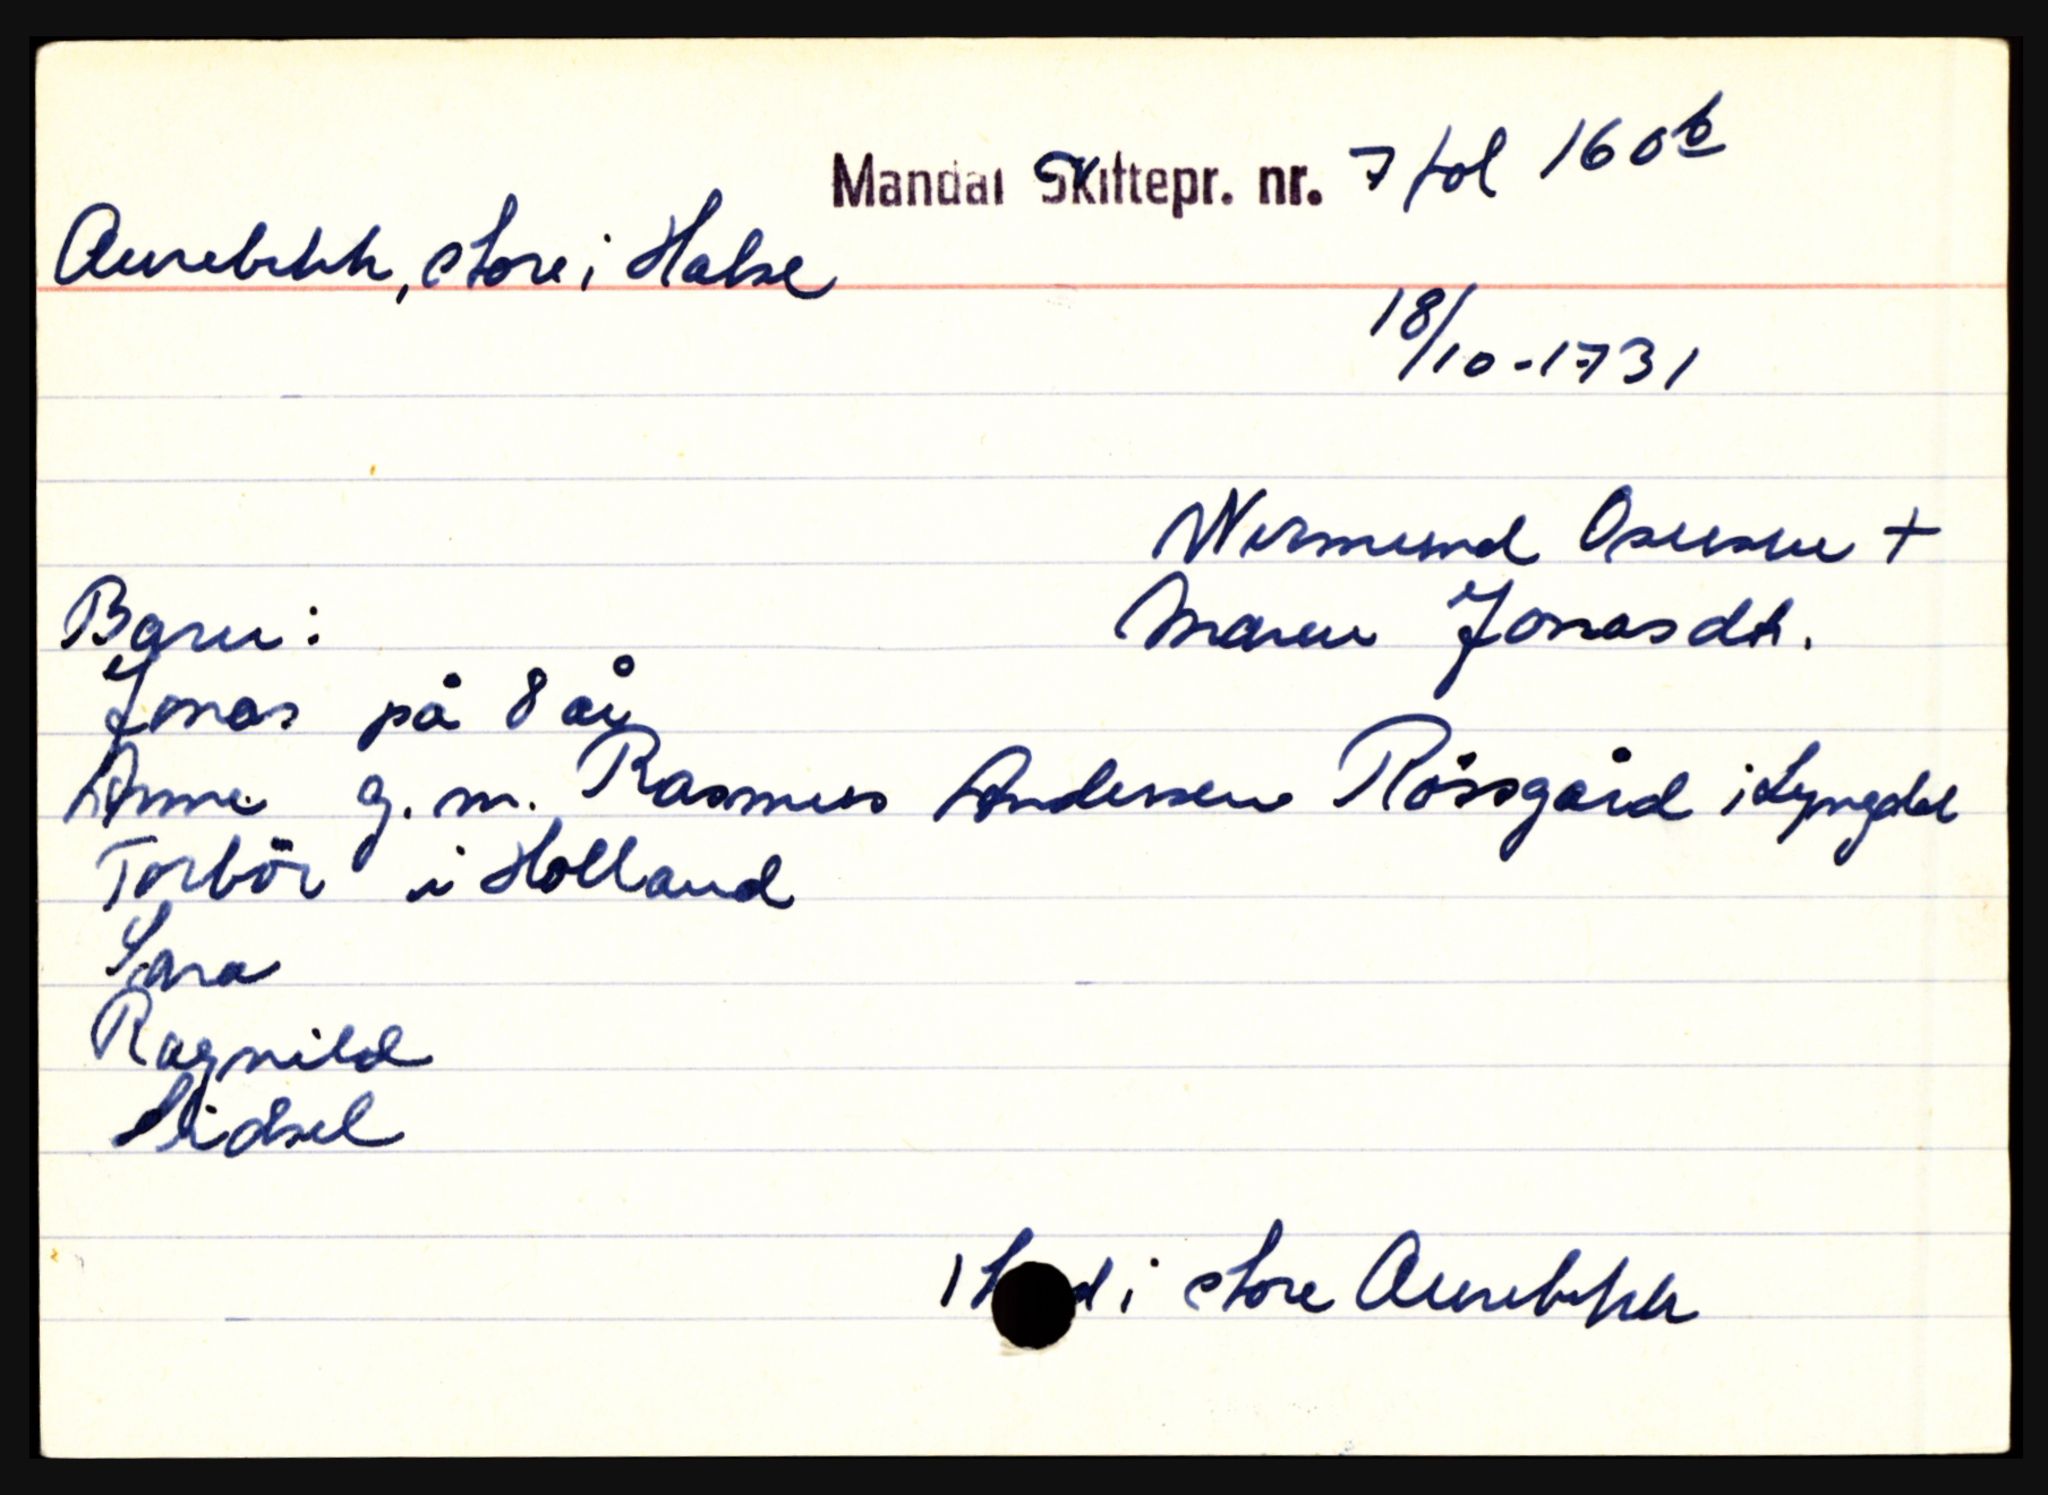 Mandal Skiftepr. nr. 7 fol 160b
Aurebekk, store i Halse
18/10-1731
Wermund Osuesen +
Maren Jonasdt.
Barn:
Jonas på 8 år
Anne g. m. Rasmus Andersen Rössgård i Lyngdal
Torbör i Holland
Sara
Ragnild
Sidsel
1 i store Aurebekk